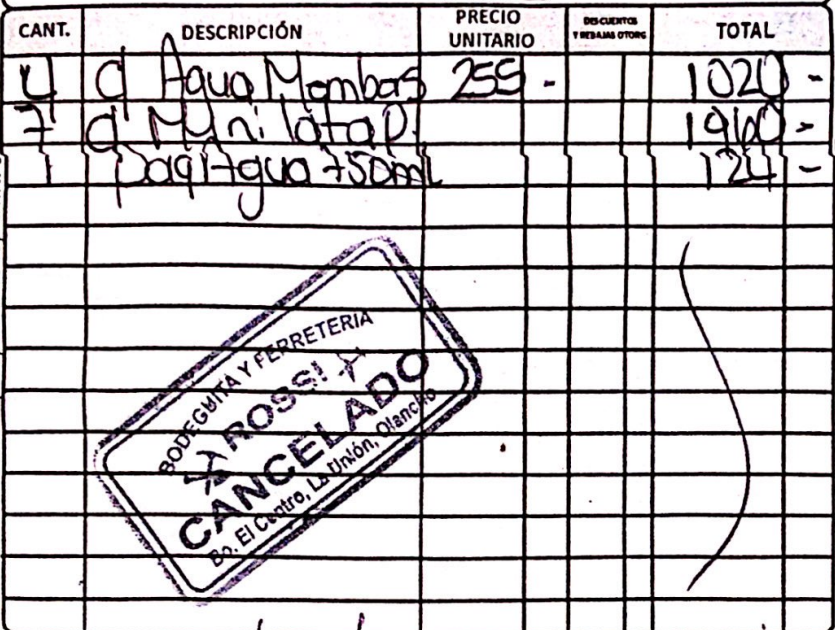 CANT. DESCRIPCIÓN PRECIO UNITARIO DESCUENTOS Y REBAJAS OTORG TOTAL
4 C Agua Mombas 255 - 1020 -
7 C Myni lata P. 1960 -
1 paq Agua 750ml 124 -
BODEGUITA Y FERRETERIA
ROSSI
CANCELADO
Bo. El Centro, La Unión, Olancho